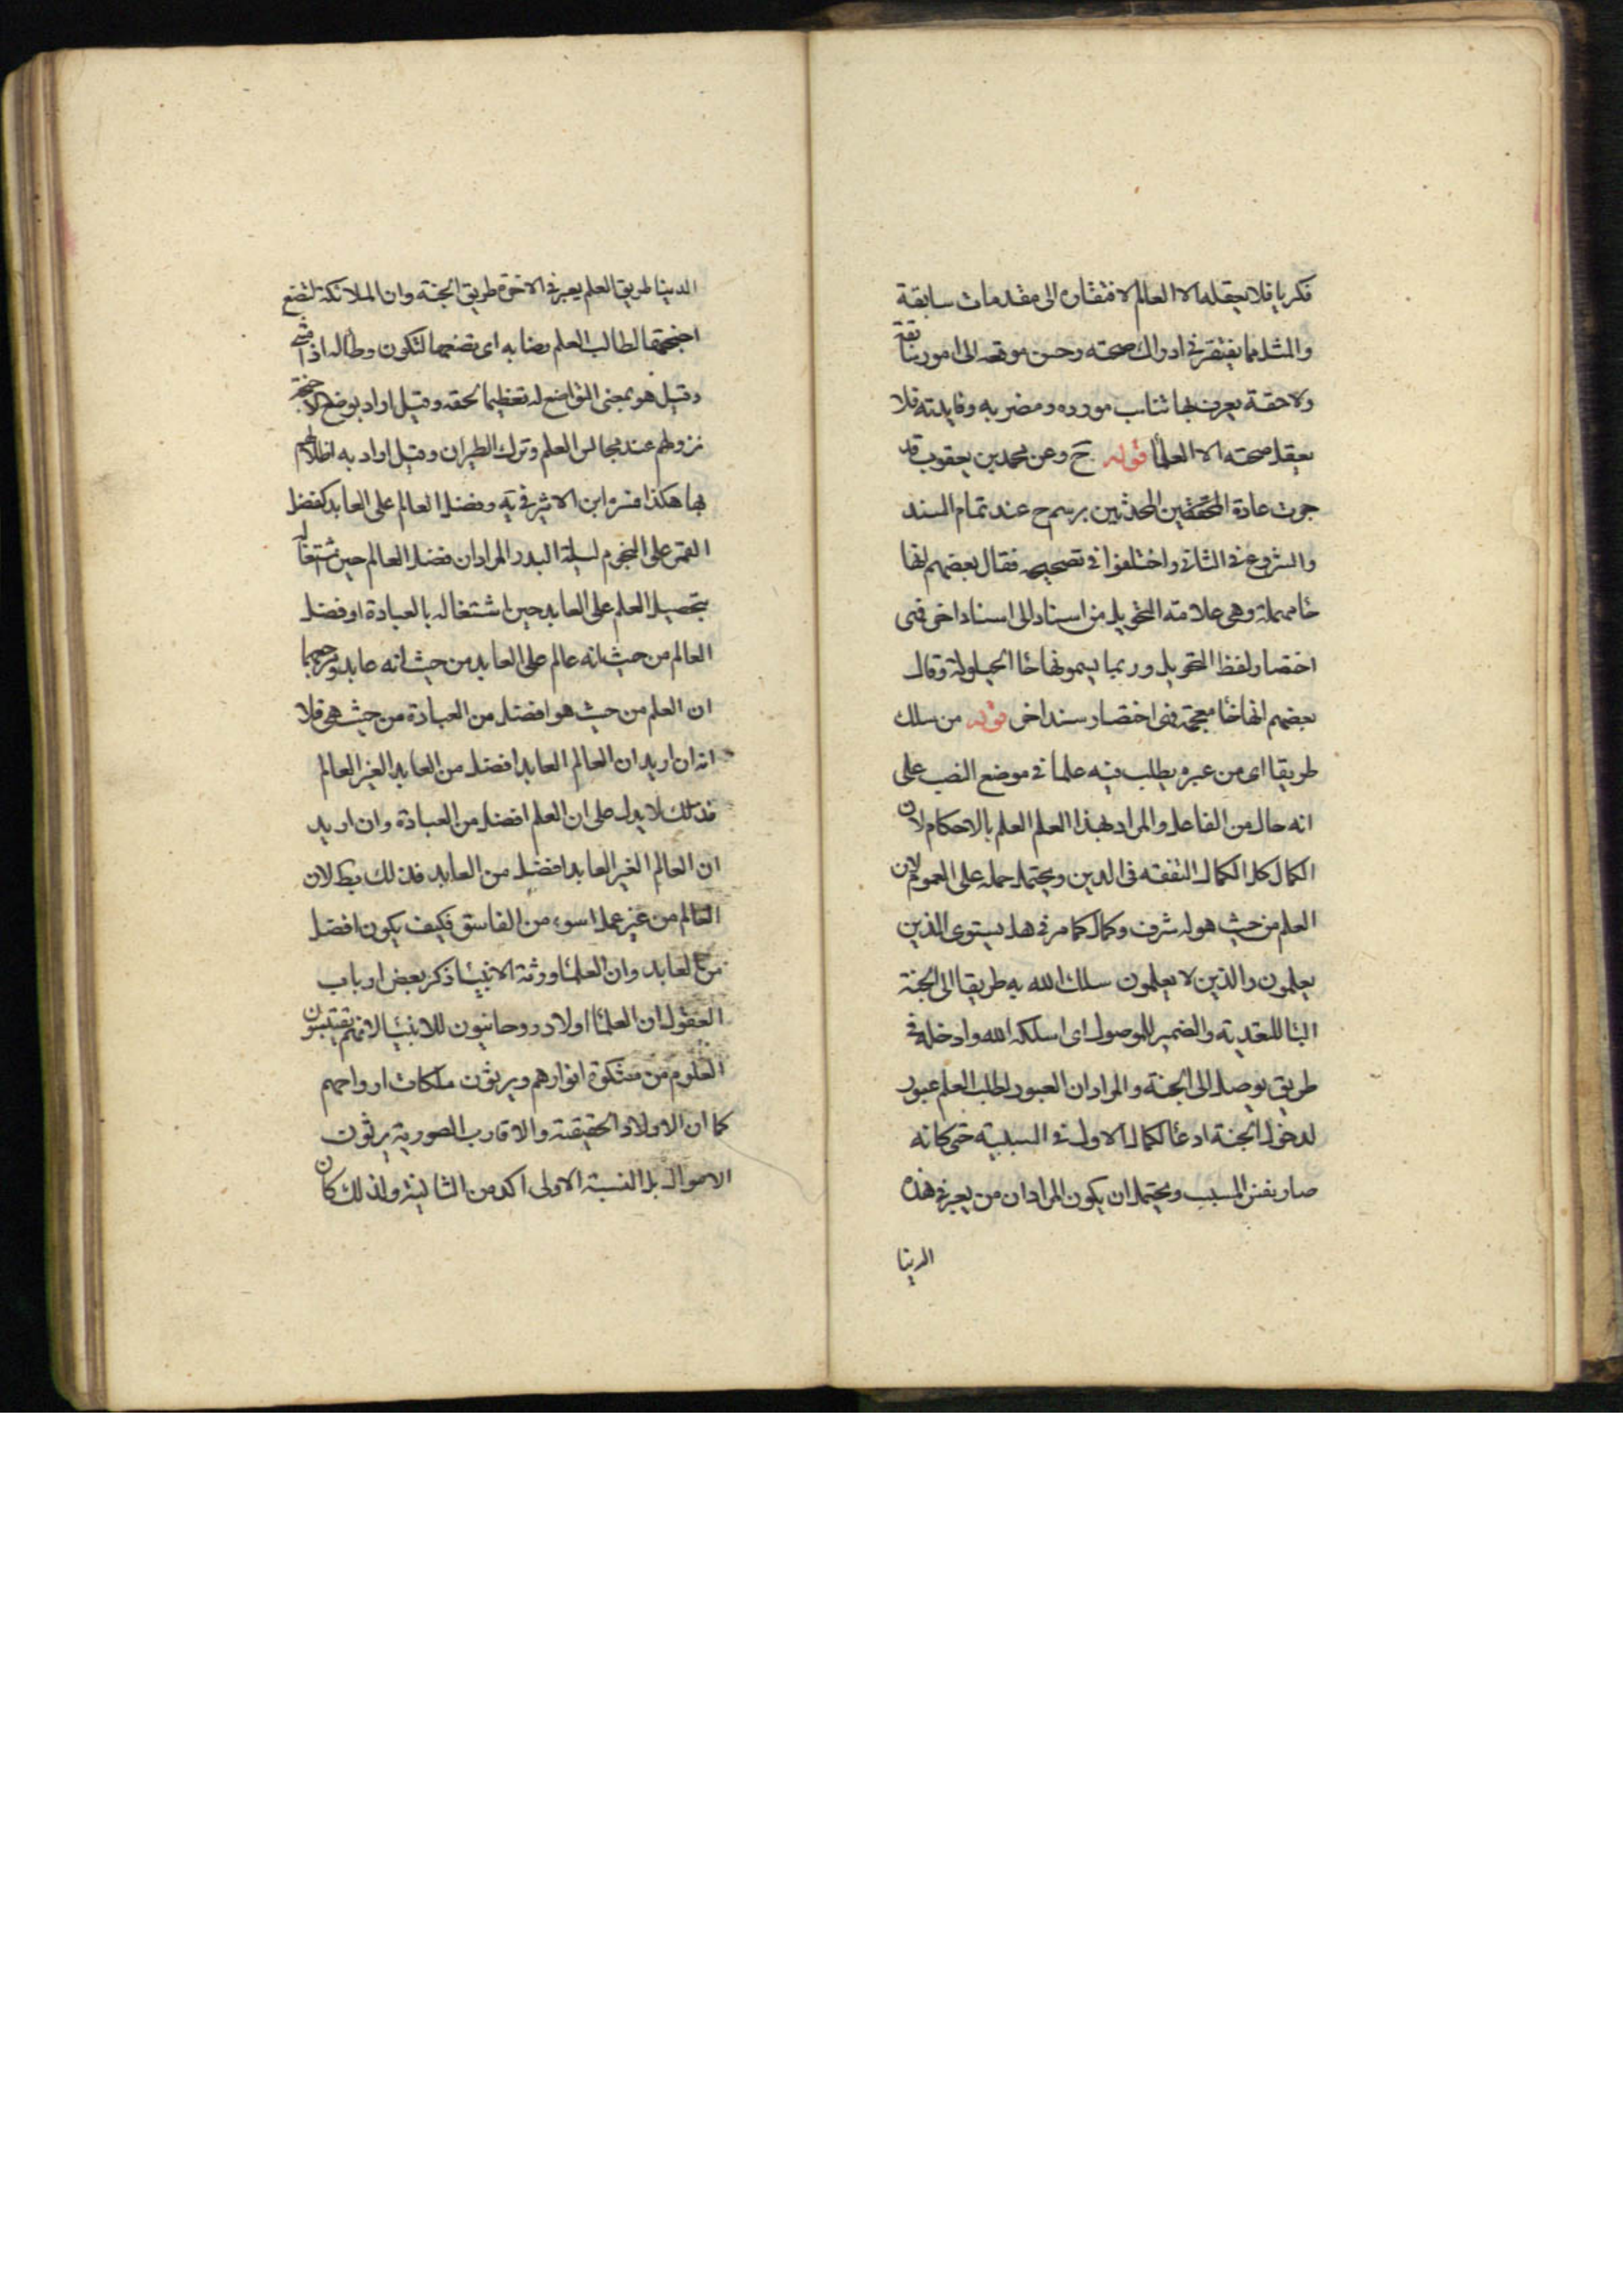 فكريا فلا يعقله الا العالم لافتقاره الى مقدمات سابقة
والمثل مما يفتقر فى ادراك صحته وحسن موقعه الى امور سابقة
ولاحقة يعرف بها تناسب مورده ومضربه وفايدته فلا
يعقل صحته الا العلما قوله ح وعن محمد بن يعقوب قد
جرت عادة المحققين المحدثين برسم ح عند تمام السند
والشروع فى الثانى واختلفوا فى تصحيحه فقال بعضهم انها
حا مهملة وهى علامة التحويل من اسناد الى اسناد اخر فهى
اختصار لفظ التحويل وربما يسمونها حا الحيلولة وقال
بعضهم انها خا معجمة وهى اختصار سند اخر قوله من سلك
طريقا اى من عبره يطلب فيه علما فى موضع النصب على
انه حال من الفاعل والمراد بهذا العلم العلم بالاحكام لان
الكمال كل الكمال التفقه فى الدين ويحتمل حمله على العموم لان
العلم من حيث هو له شرف وكمال كما مر فى هل يستوى الذين
يعلمون والذين لا يعلمون سلك الله به طريقا الى الجنة
البا للتعدية والضمير للموصول اى اسلكه الله وادخله فى
طريق يوصل الى الجنة والمراد ان العبور لطلب العلم عبور
لدخول الجنة ادعا لكمال الاول فى السببية حتى كانه
صار نفس المسبب ويحتمل ان يكون المراد ان من يعبر فى هذه
الدنيا
الدينا طريق العلم يعبر فى الاخرة طريق الجنة وان الملائكة لتضع
اجنحتها لطالب العلم رضا به اى تضعها لتكون وطأ له اذا مشى
وقيل هو بمعنى التواضع له تعظيما لحقه وقيل اراد بوضع الاجنحة
نزولهم عند مجالس العلم وترك الطيران وقيل اراد به اظلالهم
بها هكذا فسره ابن الاثير فى يه وفضل العالم على العابد كفضل
القمر على النجوم ليلة البدر المراد ان فضل العالم حين اشتغاله
بتحصيل العلم على العابد حين اشتغاله بالعبادة او فضل
العالم من حيث انه عالم على العابد من حيث انه عابد ومرجعهما
ان العلم من حيث هو افضل من العبادة من حيث هى فلا
انه ان اريد ان العالم العابد افضل من العابد الغير العالم
فذلك لا يدل على ان العلم افضل من العبادة وان اريد
ان العالم الغير العابد افضل من العابد فذلك بط لان
العالم من غير عمل اسوء من الفاسق فكيف يكون افضل
من العابد وان العلما ورثة الانبيا ذكر بعض ارباب
العقول ان العلما اولاد روحانيون للانبيا لانهم يقتبسون
العلوم من مشكوة انوارهم ويرثون ملكات ارواحهم
كما ان الاولاد الحقيقية والاقارب الصورية يرثون
الاموال بل النسبة الاولى اكد من الثانية ولذلك كان